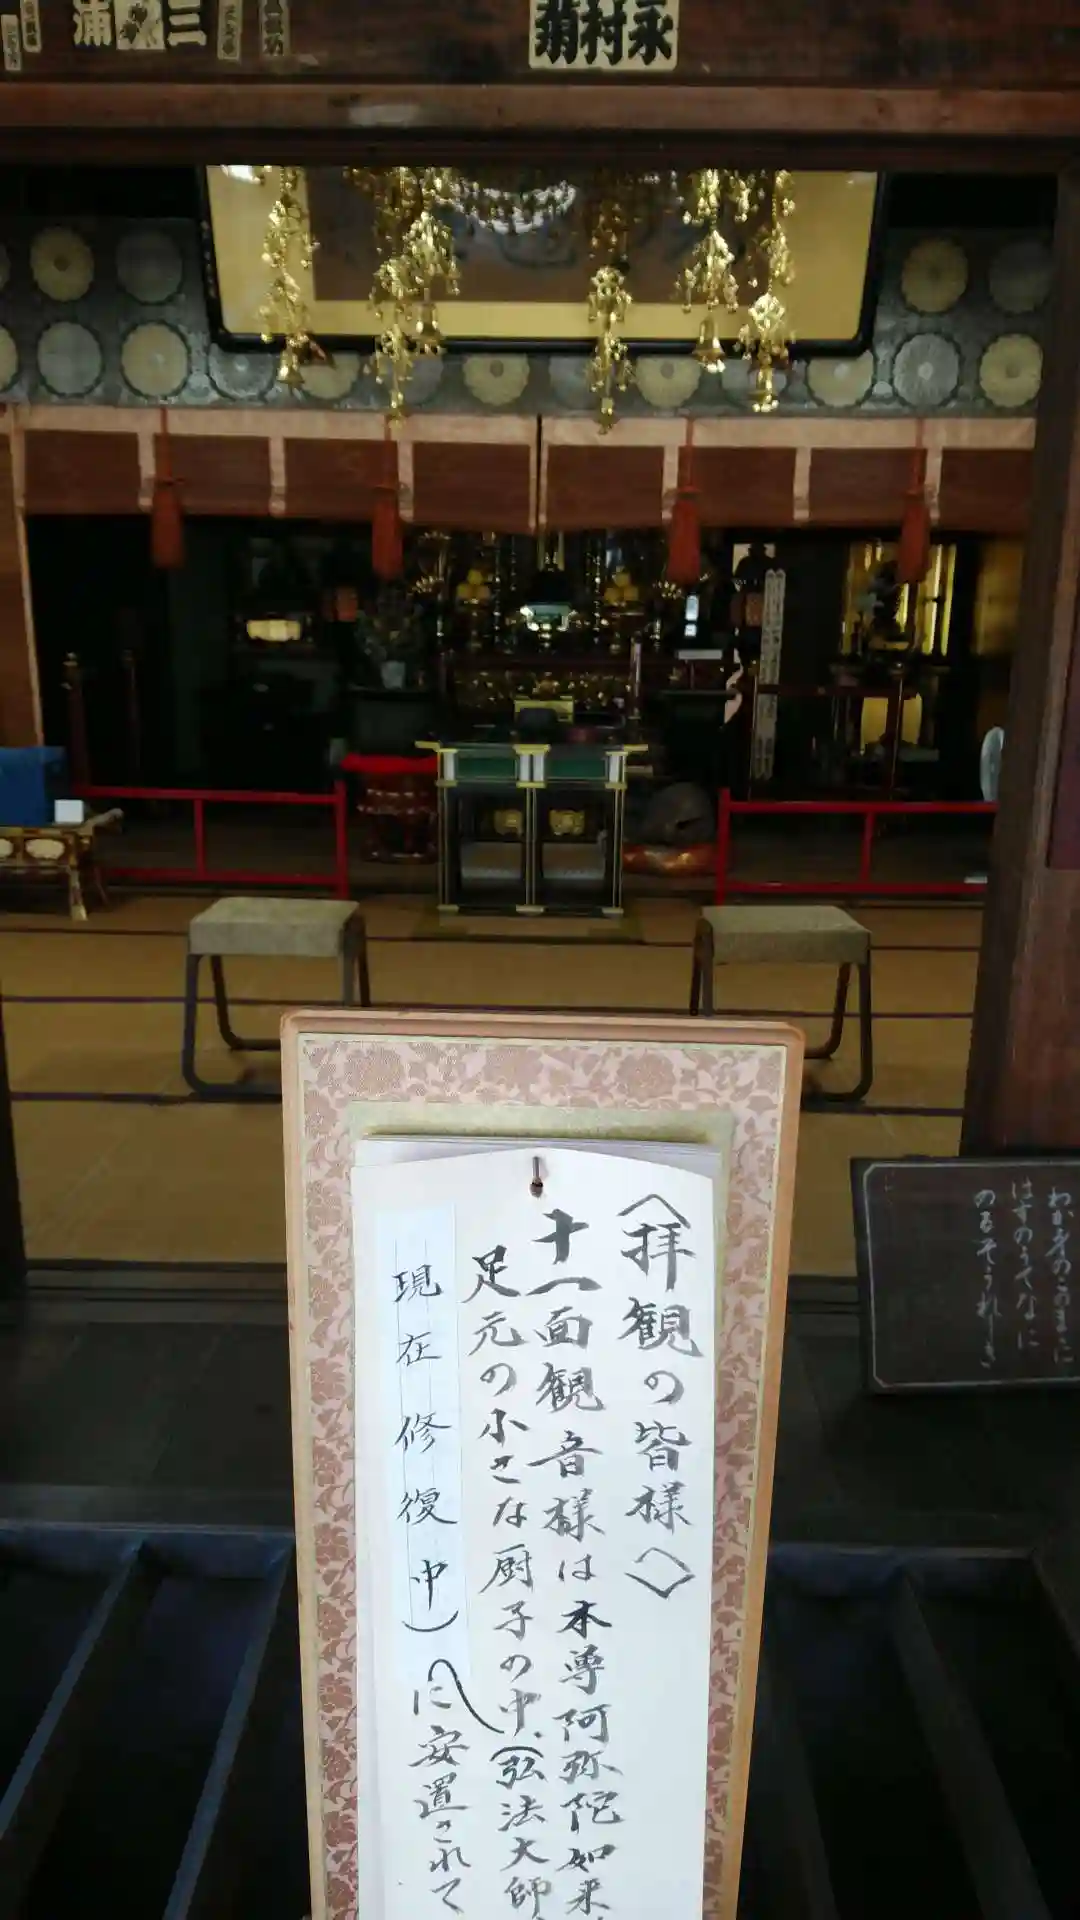 三
浦
永
村
菊
〈拝観の皆様へ〉
十一面観音様は本尊阿弥陀如来
足元の小さな厨子の中、(弘法大師
現在修復中)
に安置されて
わか身のこのまに
はすのうてなに
のるそうれしき